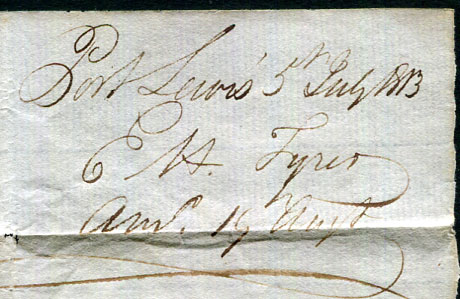 Port Louis 5th July 1813
E H. Fyres
Ansd. 19 Augt